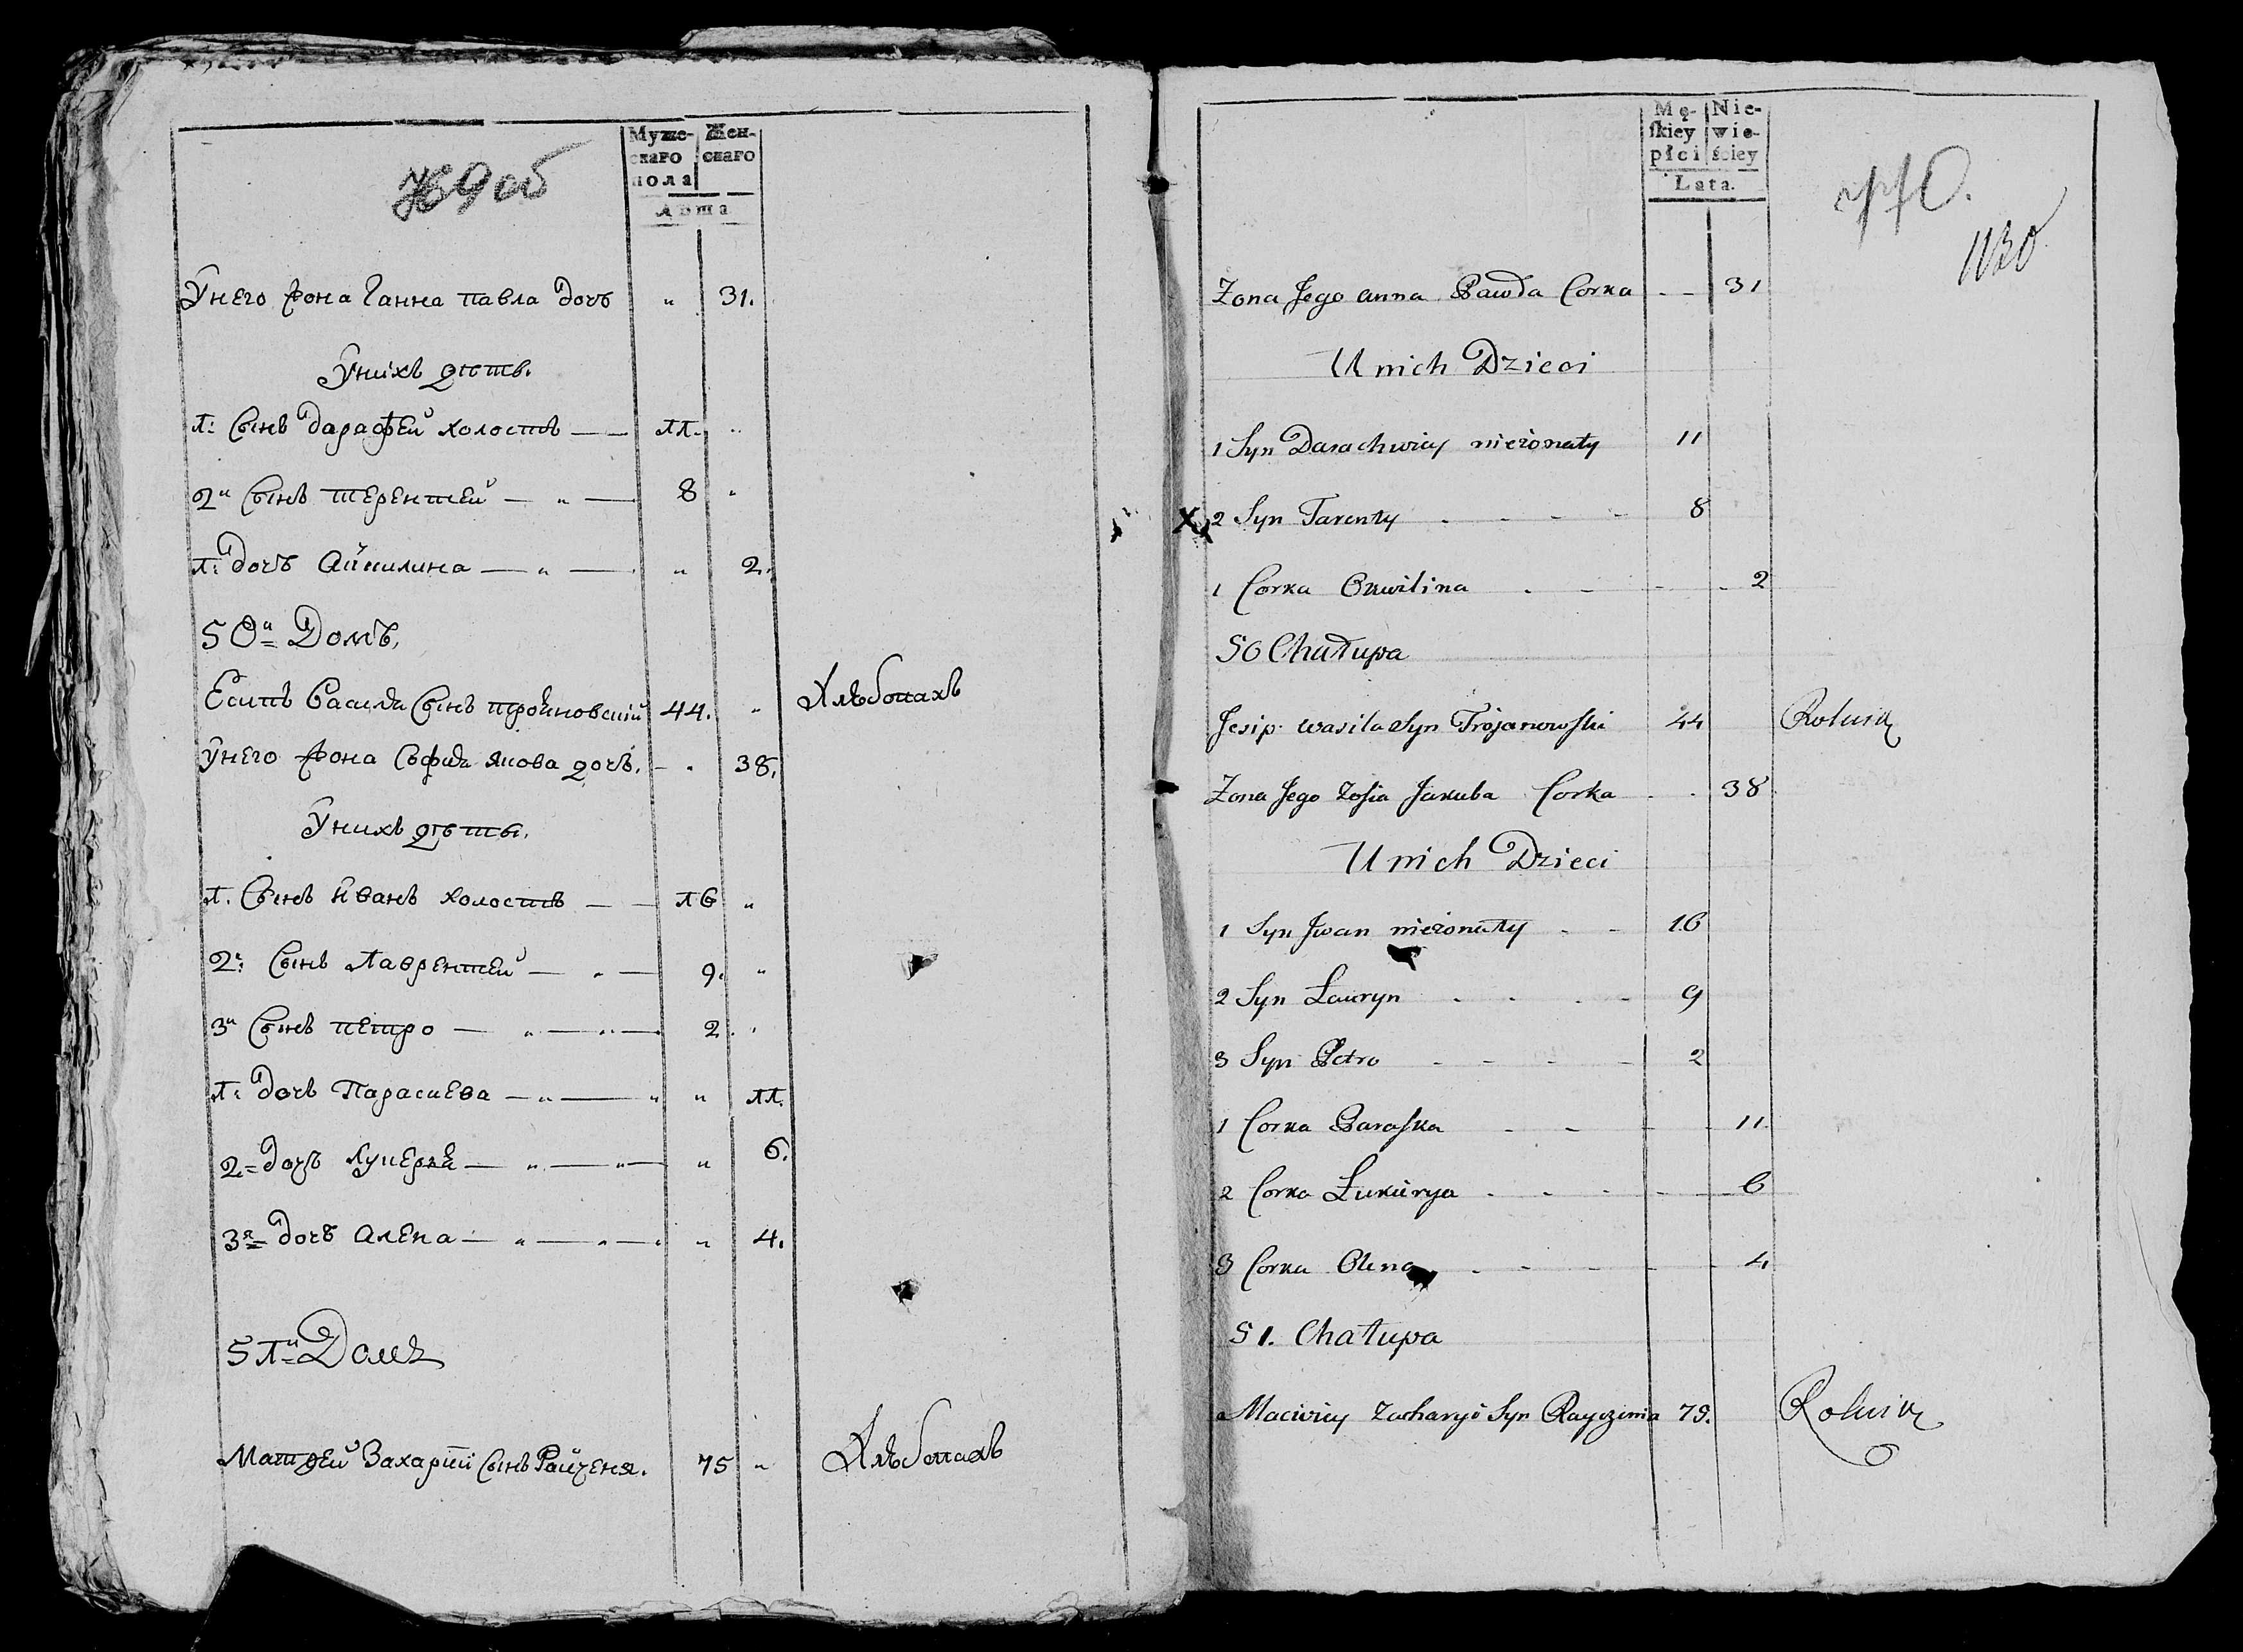 Муже-
скаго
пола
Жен-
скаго
Лѣта
Унего жона Ганна павла дочъ " 31.
Унихъ дѣти.
1: Сынъ дарафей холостъ 11. "
2й Сынъ терентей " 8 "
1: дочъ Акилина " " 2.
50й Домъ.
Есипъ Василя Сынъ трояновский 44. " Хлѣбопахъ
Унего жона София якова дочъ. " 38.
Унихъ дѣти.
1. Сынъ Иванъ холостъ 16 "
2: Сынъ Лаврентей " 9. "
3й Сынъ петро " " 2. "
1: дочъ Парасцева " " " 11.
2= дочъ лукеря " " " 6.
3я= дочъ алена " " " 4.
51й Домъ
Матфей Захарии Сынъ Райченя. 75 " Хлѣбопахъ
Mę-
skiey
płci
Nie-
wie-
ściey
Lata.
1130
Zona Jego anna Pawła Corka 31
U nich Dzieci
1 Syn Darachwiey nieżonaty 11
2 Syn Tarenty 8
1 Corka Okwilina 2
50 Chałupa
Jesip wasila Syn Trojanowski 44 Rolnik
Zona Jego Zofia Jakuba Corka 38
U nich Dzieci
1 Syn Jwan nieżonaty 16
2 Syn Lauryn 9
3 Syn Petro 2
1 Corka Paraska 11
2 Corka Łukierya 6
3 Corka Olena 4
51. Chałupa
Maciviey Zacharyi Syn Rayczenia 75. Rolnik